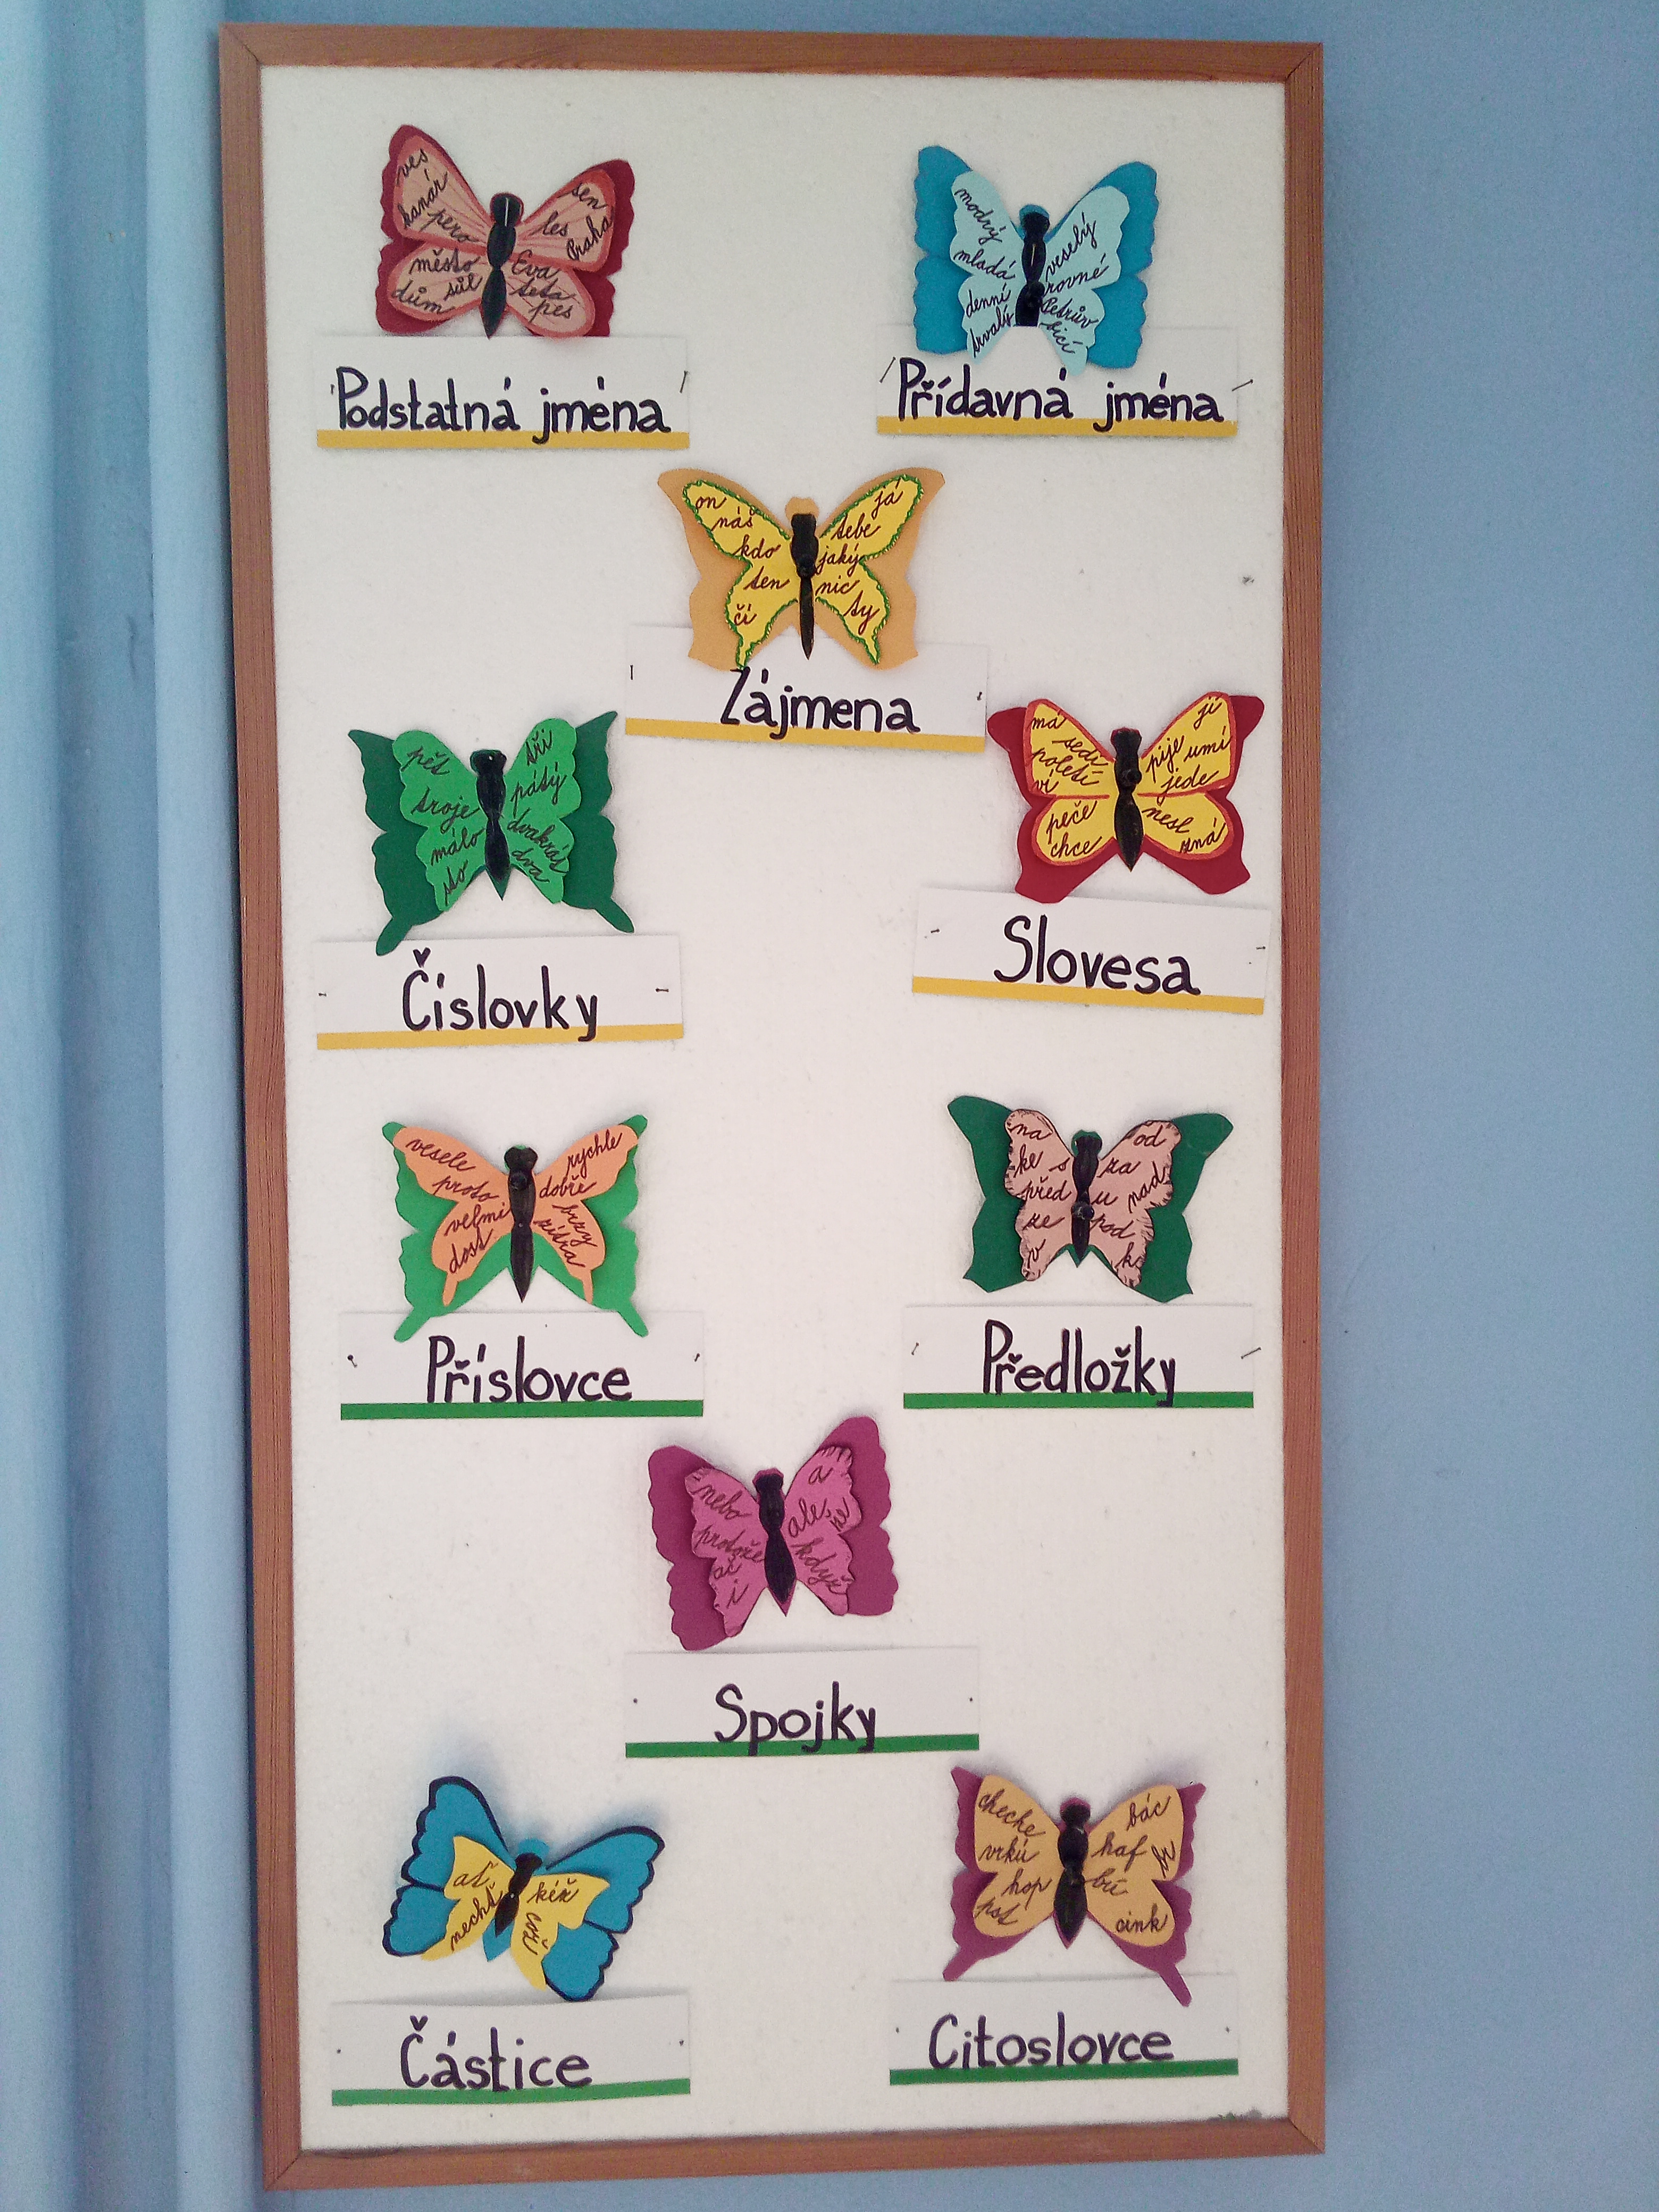 ves
kanár
pero
město
sůl
dům
sen
les
Praha
Eva
teta
pes
Podstatná jména
modrý
mladá
denní
trvalý
veselý
rovné
Petrův
bicí
Přídavná jména
on
náš
kdo
ten
čí
já
tebe
jaký
nic
ty
Zájmena
pět
troje
málo
sto
tři
pátý
dvakrát
dva
Číslovky
má
sedí
poletí
ví
peče
chce
jí
pije umí
jede
nesl
zná
Slovesa
vesele
proto
velmi
dost
rychle
dobře
brzy
zítra
Příslovce
na
ke s
před
ze
v
od
za
u nad
pod
k
Předložky
nebo
protože
ač
i
a
ale
že
když
Spojky
ať
nechť
kéž
což
Částice
cheche
vrkú
hop
pst
bác
haf
br
bú
cink
Citoslovce